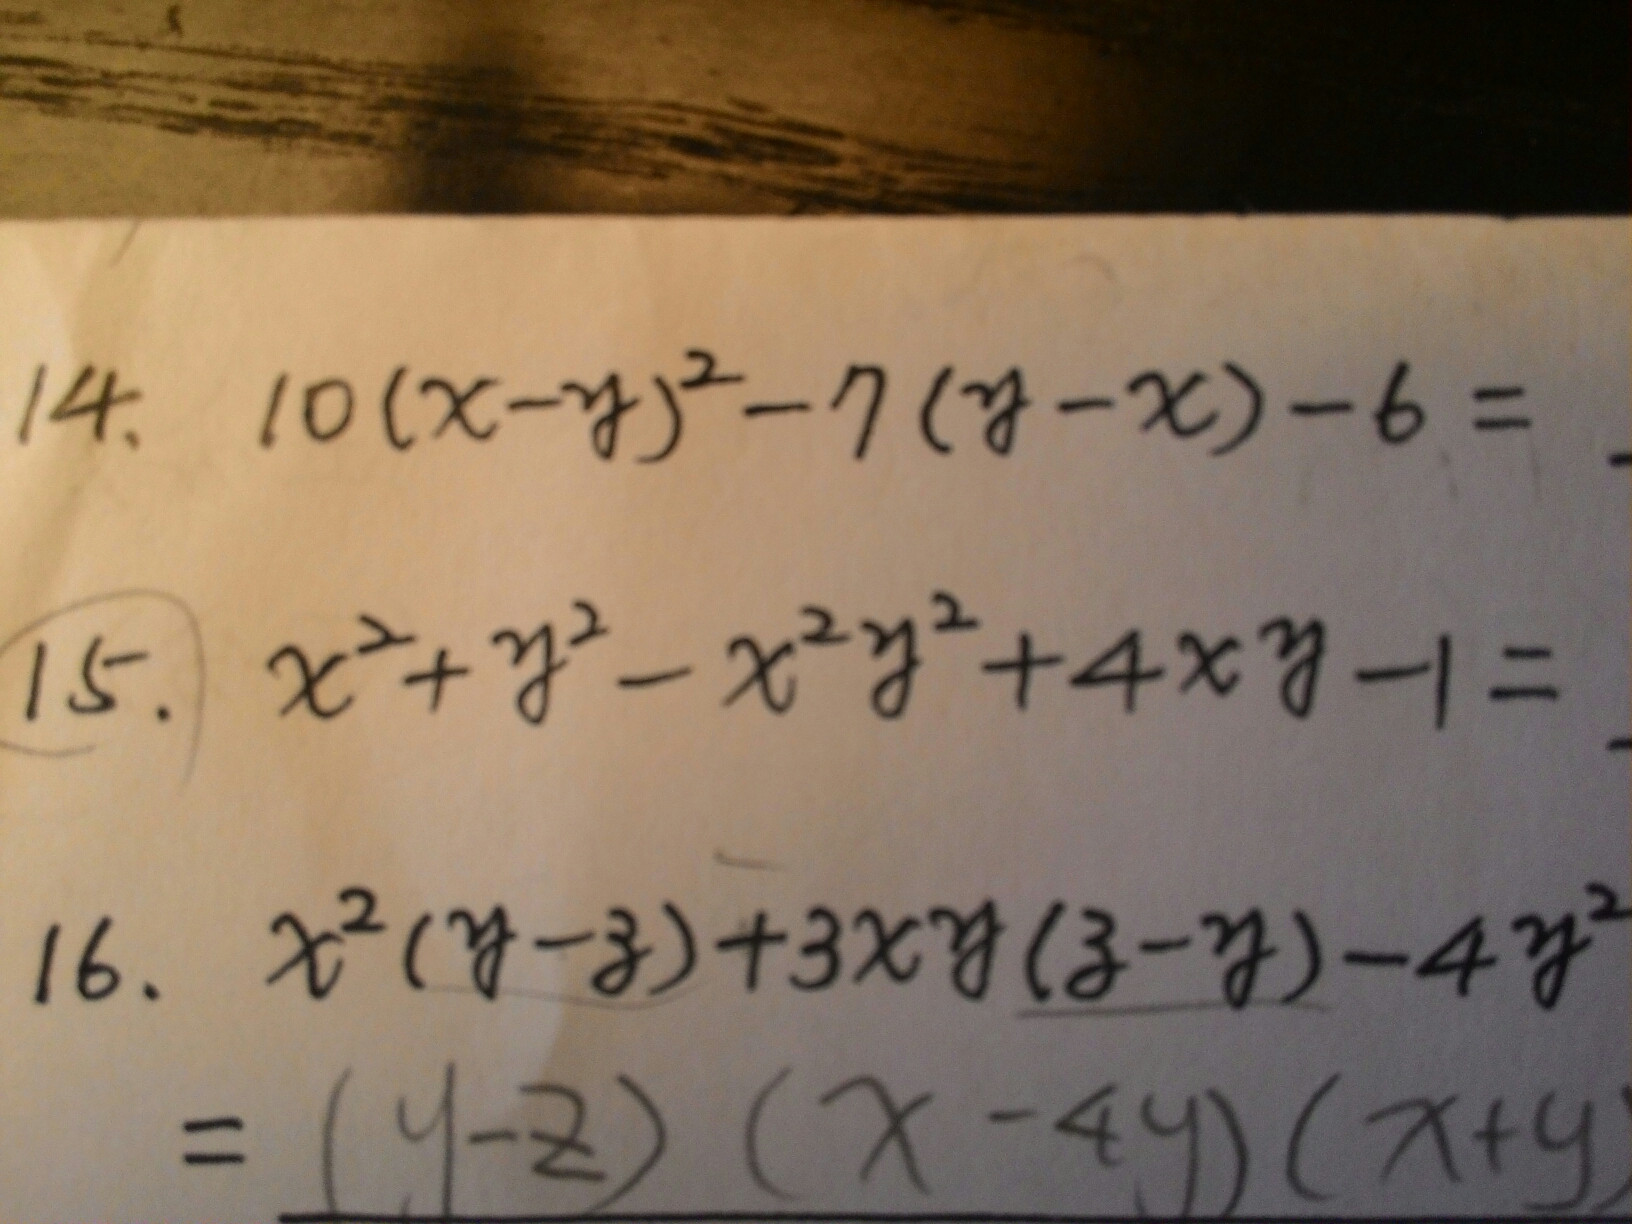 14. 10(x-y)²-7(y-x)-6=
15. x²+y²-x²y²+4xy-1=
16. x²(y-z)+3xy(z-y)-4y²
=(y-z)(x-4y)(x+y)